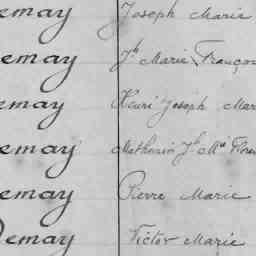 emay Joseph Marie
emay Jh Marie Franço
emay Henri Joseph Mar
emay Mathurin Jh Mie Flore
emay Pierre Marie
Demay Victor Marie